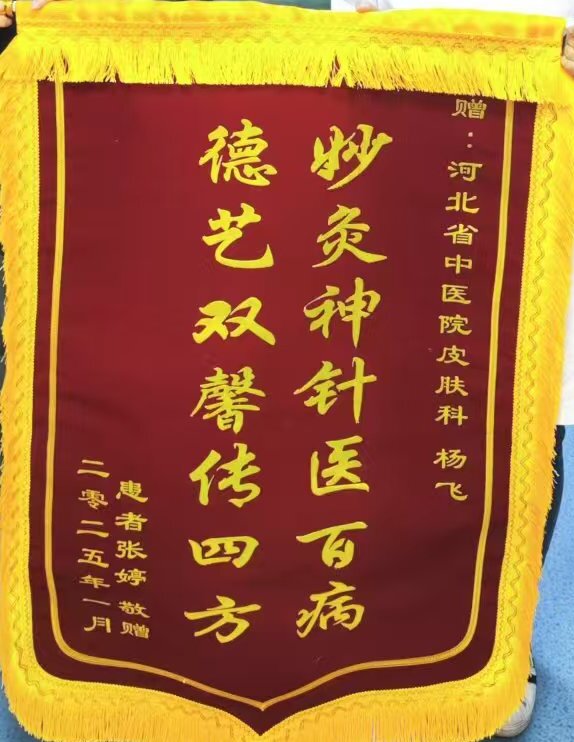 赠：河北省中医院皮肤科 杨飞
妙灸神针医百病
德艺双馨传四方
患者张婷 敬赠
二零二五年一月